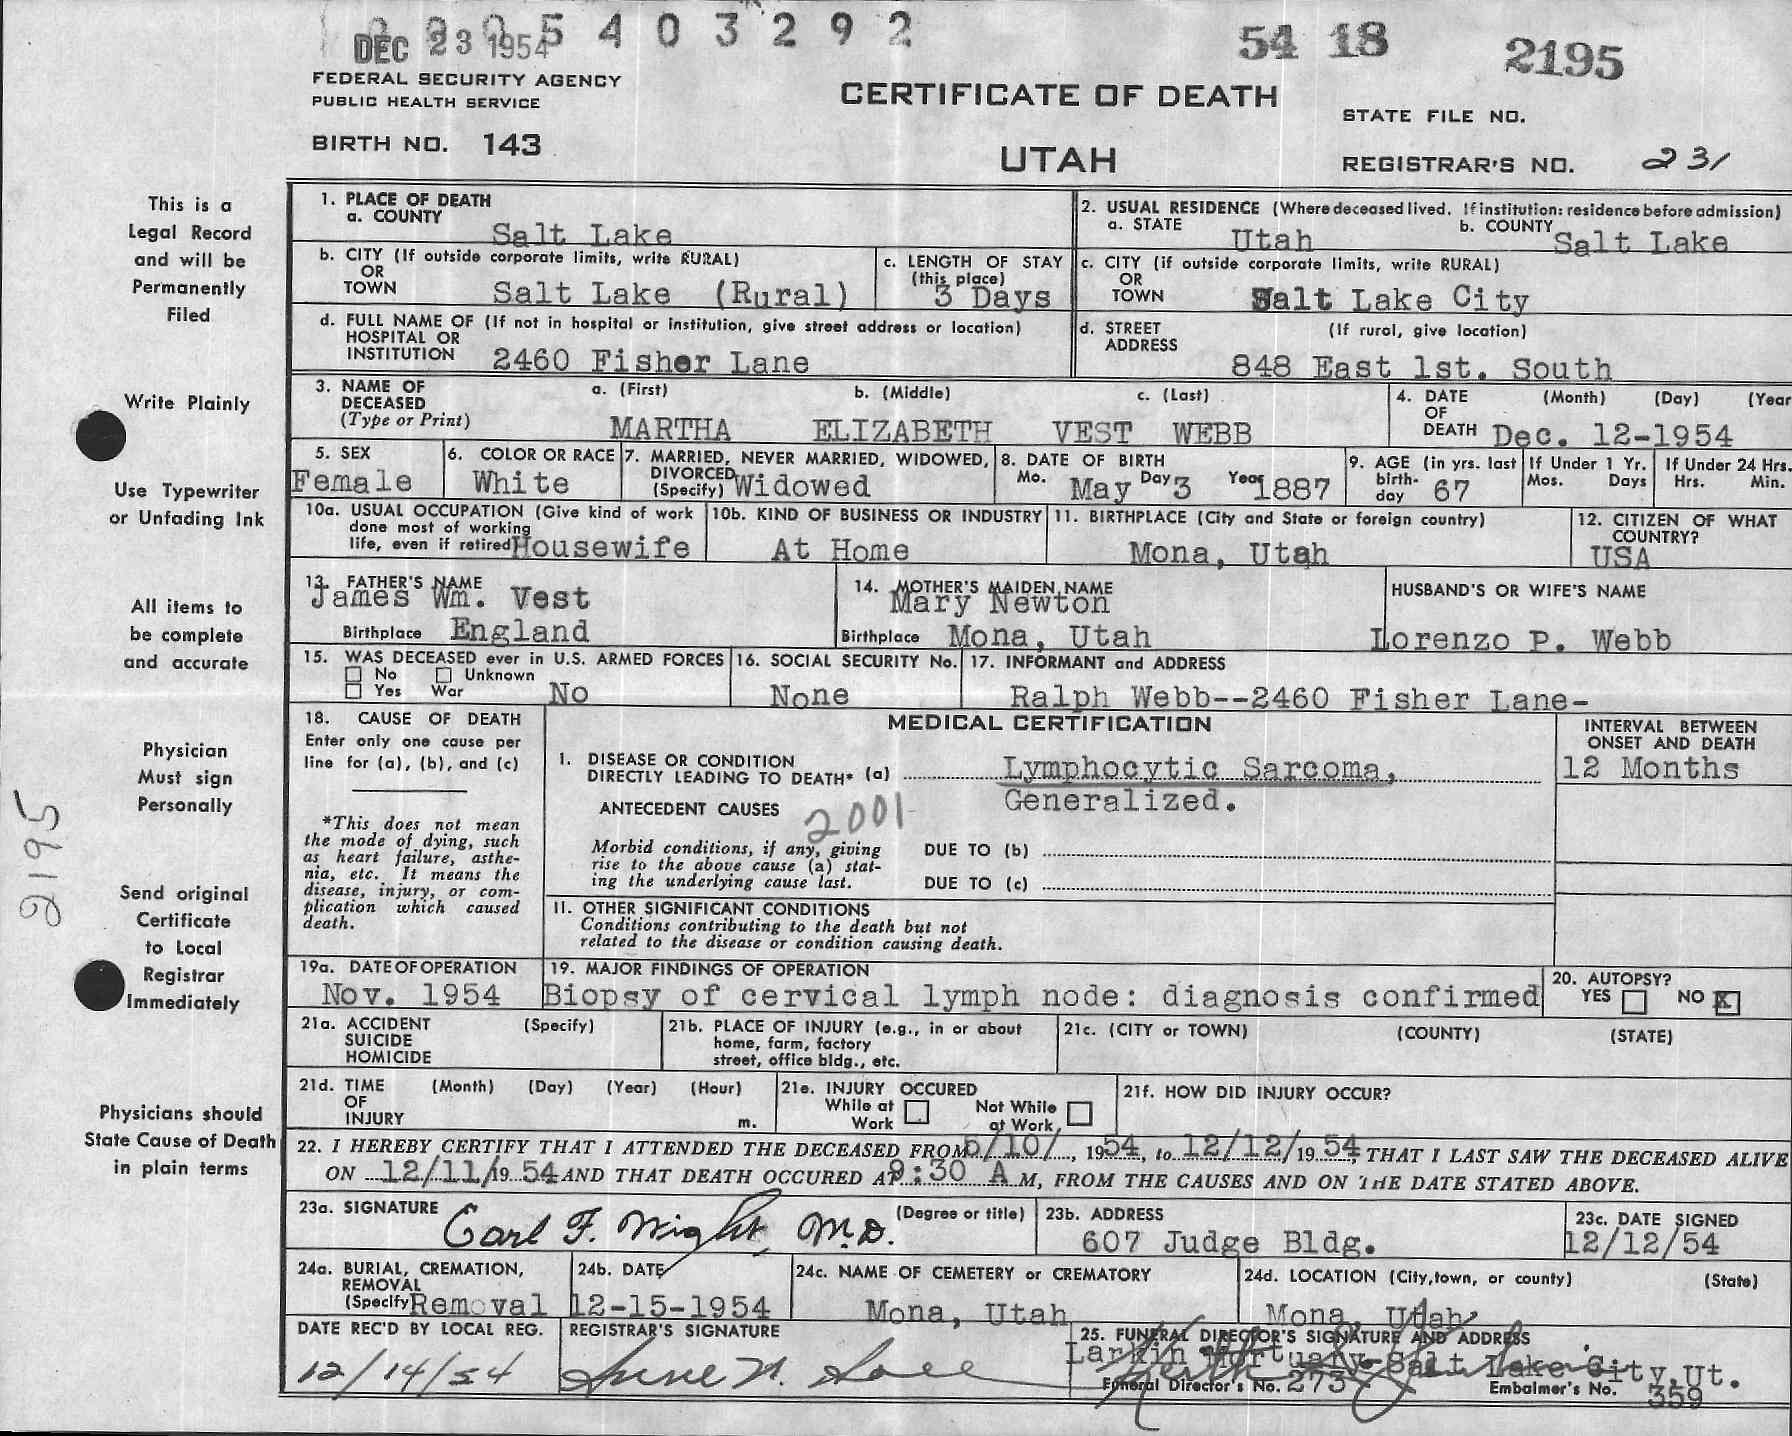 DEC 23 1954 5 4 0 3 2 9 2
54 18 2195
FEDERAL SECURITY AGENCY
PUBLIC HEALTH SERVICE
CERTIFICATE OF DEATH
STATE FILE NO.
BIRTH NO. 143
UTAH
REGISTRAR'S NO. 231
This is a
Legal Record
and will be
Permanently
Filed
Write Plainly
Use Typewriter
or Unfading Ink
All items to
be complete
and accurate
Physician
Must sign
Personally
2195
Send original
Certificate
to Local
Registrar
Immediately
Physicians should
State Cause of Death
in plain terms
1. PLACE OF DEATH
a. COUNTY
Salt Lake
2. USUAL RESIDENCE (Where deceased lived. If institution: residence before admission)
a. STATE Utah b. COUNTY Salt Lake
b. CITY (If outside corporate limits, write RURAL)
OR
TOWN Salt Lake (Rural)
c. LENGTH OF STAY
(this place)
3 Days
c. CITY (if outside corporate limits, write RURAL)
OR
TOWN Salt Lake City
d. FULL NAME OF (If not in hospital or institution, give street address or location)
HOSPITAL OR
INSTITUTION 2460 Fisher Lane
d. STREET (If rurol, give location)
ADDRESS
848 East 1st. South
3. NAME OF a. (First) b. (Middle) c. (Last)
DECEASED
(Type or Print) MARTHA ELIZABETH VEST WEBB
4. DATE (Month) (Day) (Year
OF
DEATH Dec. 12-1954
5. SEX
Female
6. COLOR OR RACE
White
7. MARRIED, NEVER MARRIED, WIDOWED,
DIVORCED
(Specify) Widowed
8. DATE OF BIRTH
Mo. May Day 3 Year 1887
9. AGE (in yrs. last
birth-
day 67
If Under 1 Yr.
Mos. Days
If Under 24 Hrs.
Hrs. Min.
10a. USUAL OCCUPATION (Give kind of work
done most of working
life, even if retired Housewife
10b. KIND OF BUSINESS OR INDUSTRY
At Home
11. BIRTHPLACE (City and State or foreign country)
Mona, Utah
12. CITIZEN OF WHAT
COUNTRY?
USA
13. FATHER'S NAME
James Wm. Vest
Birthplace England
14. MOTHER'S MAIDEN NAME
Mary Newton
Birthplace Mona, Utah
HUSBAND'S OR WIFE'S NAME
Lorenzo P. Webb
15. WAS DECEASED ever in U.S. ARMED FORCES
No Unknown
Yes War No
16. SOCIAL SECURITY No.
None
17. INFORMANT and ADDRESS
Ralph Webb--2460 Fisher Lane-
18. CAUSE OF DEATH
Enter only one cause per
line for (a), (b), and (c)
*This does not mean
the mode of dying, such
as heart failure, asthe-
nia, etc. It means the
disease, injury, or com-
plication which caused
death.
MEDICAL CERTIFICATION
INTERVAL BETWEEN
ONSET AND DEATH
1. DISEASE OR CONDITION
DIRECTLY LEADING TO DEATH* (a) Lymphocytic Sarcoma,
12 Months
Generalized.
ANTECEDENT CAUSES 2001
Morbid conditions, if any, giving
rise to the above cause (a) stat-
ing the underlying cause last.
DUE TO (b)
DUE TO (c)
11. OTHER SIGNIFICANT CONDITIONS
Conditions contributing to the death but not
related to the disease or condition causing death.
19a. DATE OF OPERATION
Nov. 1954
19. MAJOR FINDINGS OF OPERATION
Biopsy of cervical lymph node: diagnosis confirmed
20. AUTOPSY?
YES NO X
21a. ACCIDENT (Specify)
SUICIDE
HOMICIDE
21b. PLACE OF INJURY (e.g., in or about
home, farm, factory
street, office bldg., etc.
21c. (CITY or TOWN) (COUNTY) (STATE)
21d. TIME (Month) (Day) (Year) (Hour)
OF
INJURY m.
21e. INJURY OCCURED
While at Work
Not While at Work
21f. HOW DID INJURY OCCUR?
22. I HEREBY CERTIFY THAT I ATTENDED THE DECEASED FROM 5/10/, 1954, to 12/12/19 54, THAT I LAST SAW THE DECEASED ALIVE
ON 12/11/19 54 AND THAT DEATH OCCURED AT :30 A M, FROM THE CAUSES AND ON THE DATE STATED ABOVE.
23a. SIGNATURE (Degree or title)
Carl F. Wight, M.D.
23b. ADDRESS
607 Judge Bldg.
23c. DATE SIGNED
12/12/54
24a. BURIAL, CREMATION,
REMOVAL
(Specify Removal
24b. DATE
12-15-1954
24c. NAME OF CEMETERY or CREMATORY
Mona, Utah
24d. LOCATION (City, town, or county) (State)
Mona, Utah
DATE REC'D BY LOCAL REG.
12/14/54
REGISTRAR'S SIGNATURE
25. FUNERAL DIRECTOR'S SIGNATURE AND ADDRESS
Larkin Mortuary-Salt Lake City, Ut.
Funeral Director's No. 273 Embalmer's No. 359